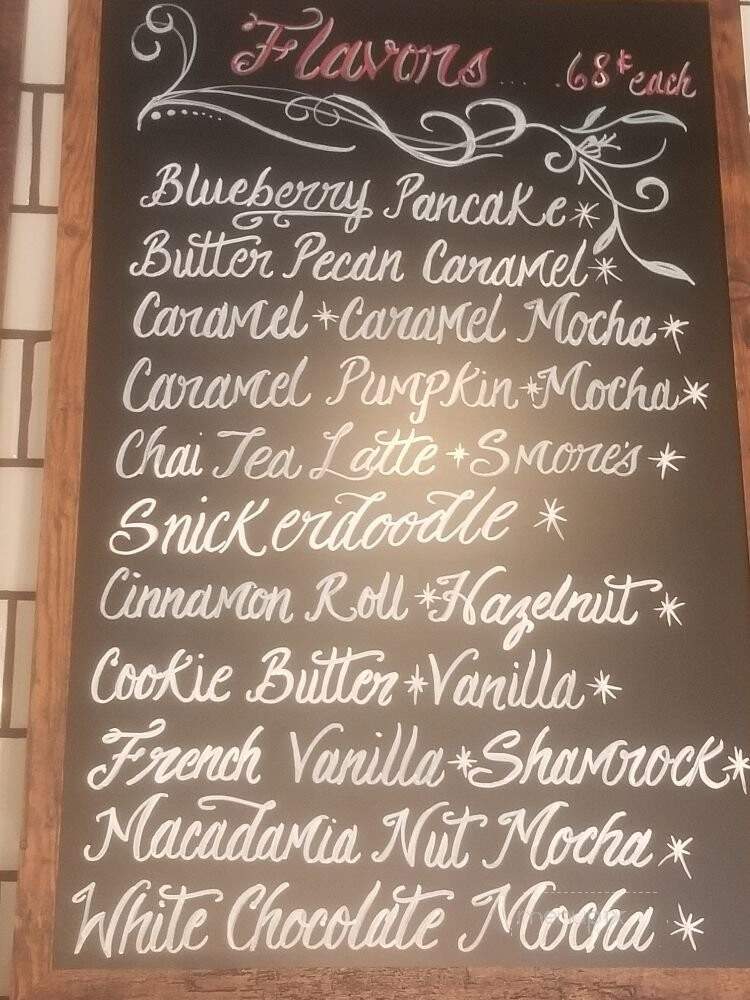 Flavors .... .68¢ each
Blueberry Pancake*
Butter Pecan Caramel*
Caramel*Caramel Mocha*
Caramel Pumpkin*Mocha*
Chai Tea Latte*Smore's*
Snickerdoodle *
Cinnamon Roll*Hazelnut*
Cookie Butter*Vanilla*
French Vanilla*Shamrock*
Macadamia Nut Mocha*
White Chocolate Mocha*